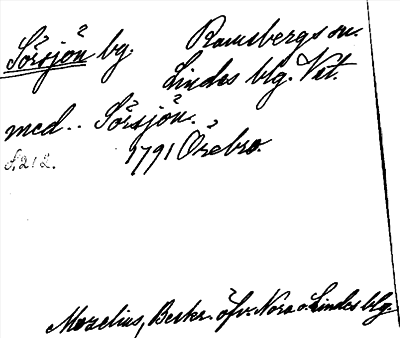 Sörsjön bg. Ramsbergs sn.
Lindes blg. Vst.
med.. Sörsjön.
1791 Örebro.
S. 212.
Mozelius, Beskr. öfv. Nora o. Lindes blg.